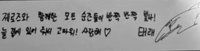 제로즈와 함께한 모든 순간들이 반짝 반짝 했다!
늘 곁에 있어 줘서 고마워! 사랑해♡ 태래